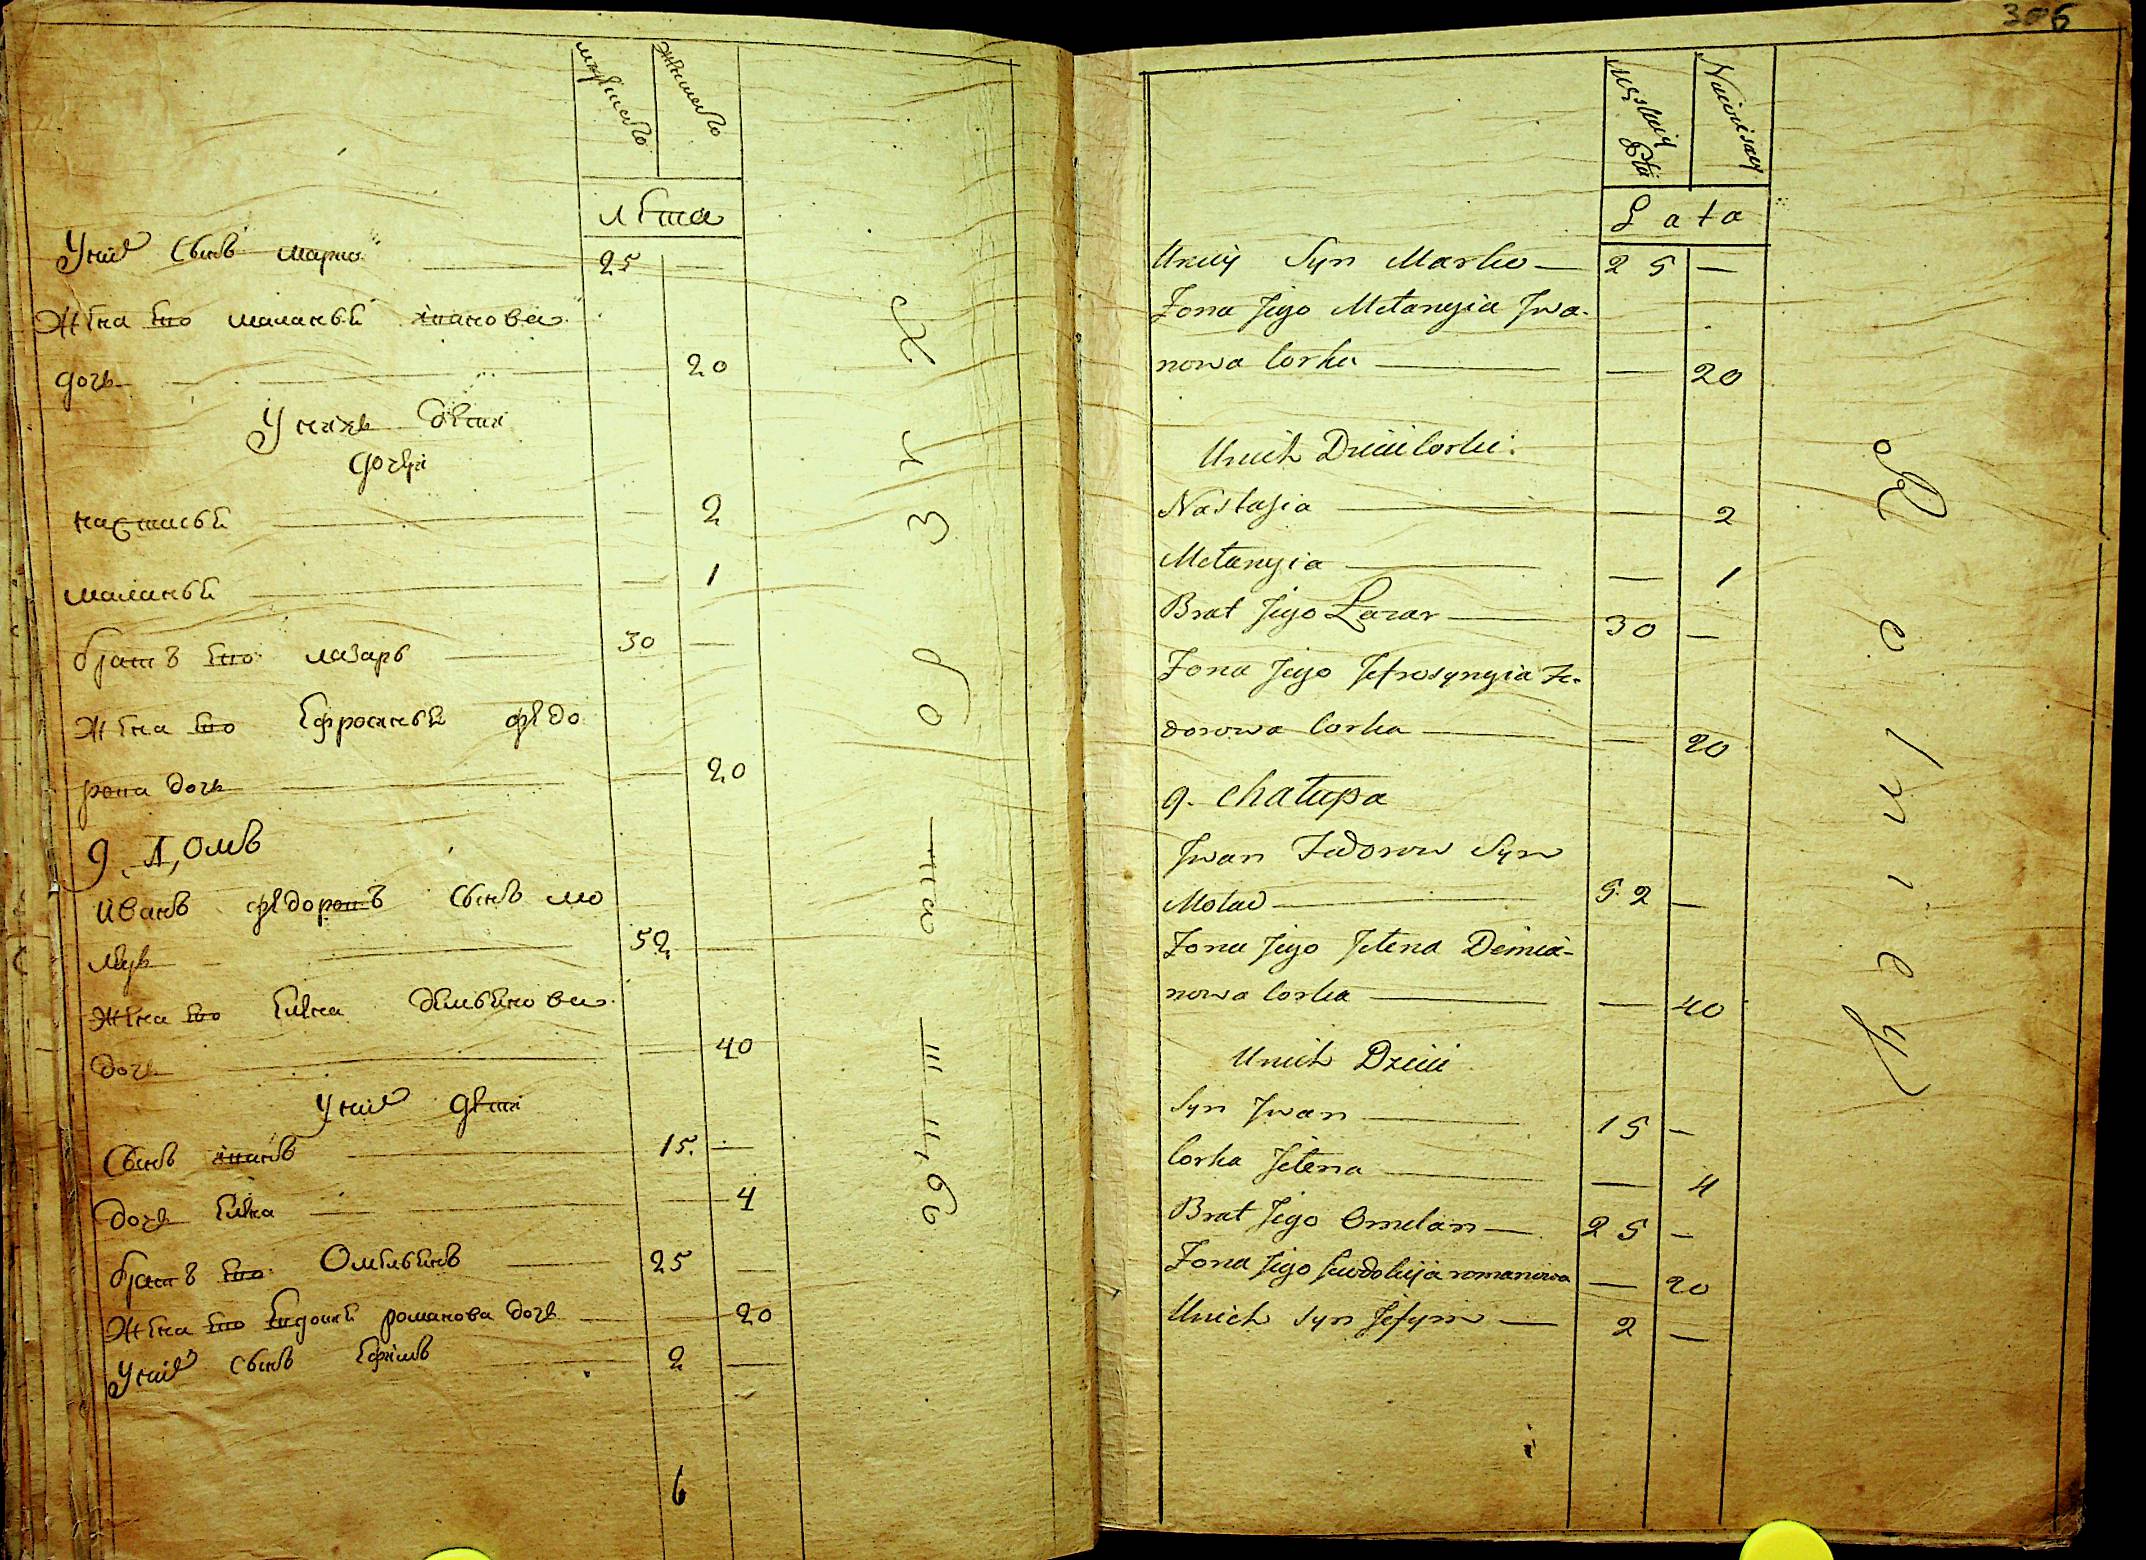 мужеского
женского
лѣта
У ней сынъ марко 25 —
Жена его маланья иванова
дочь — 20
У нихъ дѣти
дочери
настасья — 2
маланья — 1
братъ его лазарь 30 —
жена его Ефросинья ѳедо
рова дочь — 20
9. Домъ
Иванъ ѳедоровъ сынъ мо
52 —
Жена его Елена демьянова
дочь — 40
У ней дѣти
Сынъ иванъ 15. —
дочь Елена — 4
братъ его Омельянъ 25 —
Жена его Евдокия романова дочь — 20
У ней сынъ Ефимъ 2 —
6
Хлѣборо
па
ш
ецъ
306
Męskiey
Płci
Niewiesciey
Lata
Uniey Syn Marko — 25 —
Żona Jego Mełanyia Jwa-
nowa Corka — 20
Unich Dzieci Corki:
Nastasia — 2
Mełanyia — 1
Brat Jego Łazar — 30 —
Żona Jego Jefrosynyia Fe-
dorowa Corka — 20
9. Chałupa
Jwan Fedorow Syn
52 —
Żona Jego Jełena Demia-
nowa Corka — 40
Unich Dzieci
Syn Jwan — 15 —
Corka Jełena — 4
Brat Jego Omelan — 25 —
Żona Jego Jewdokija romanowa — 20
Unich Syn Jefym — 2 —
Rolniey